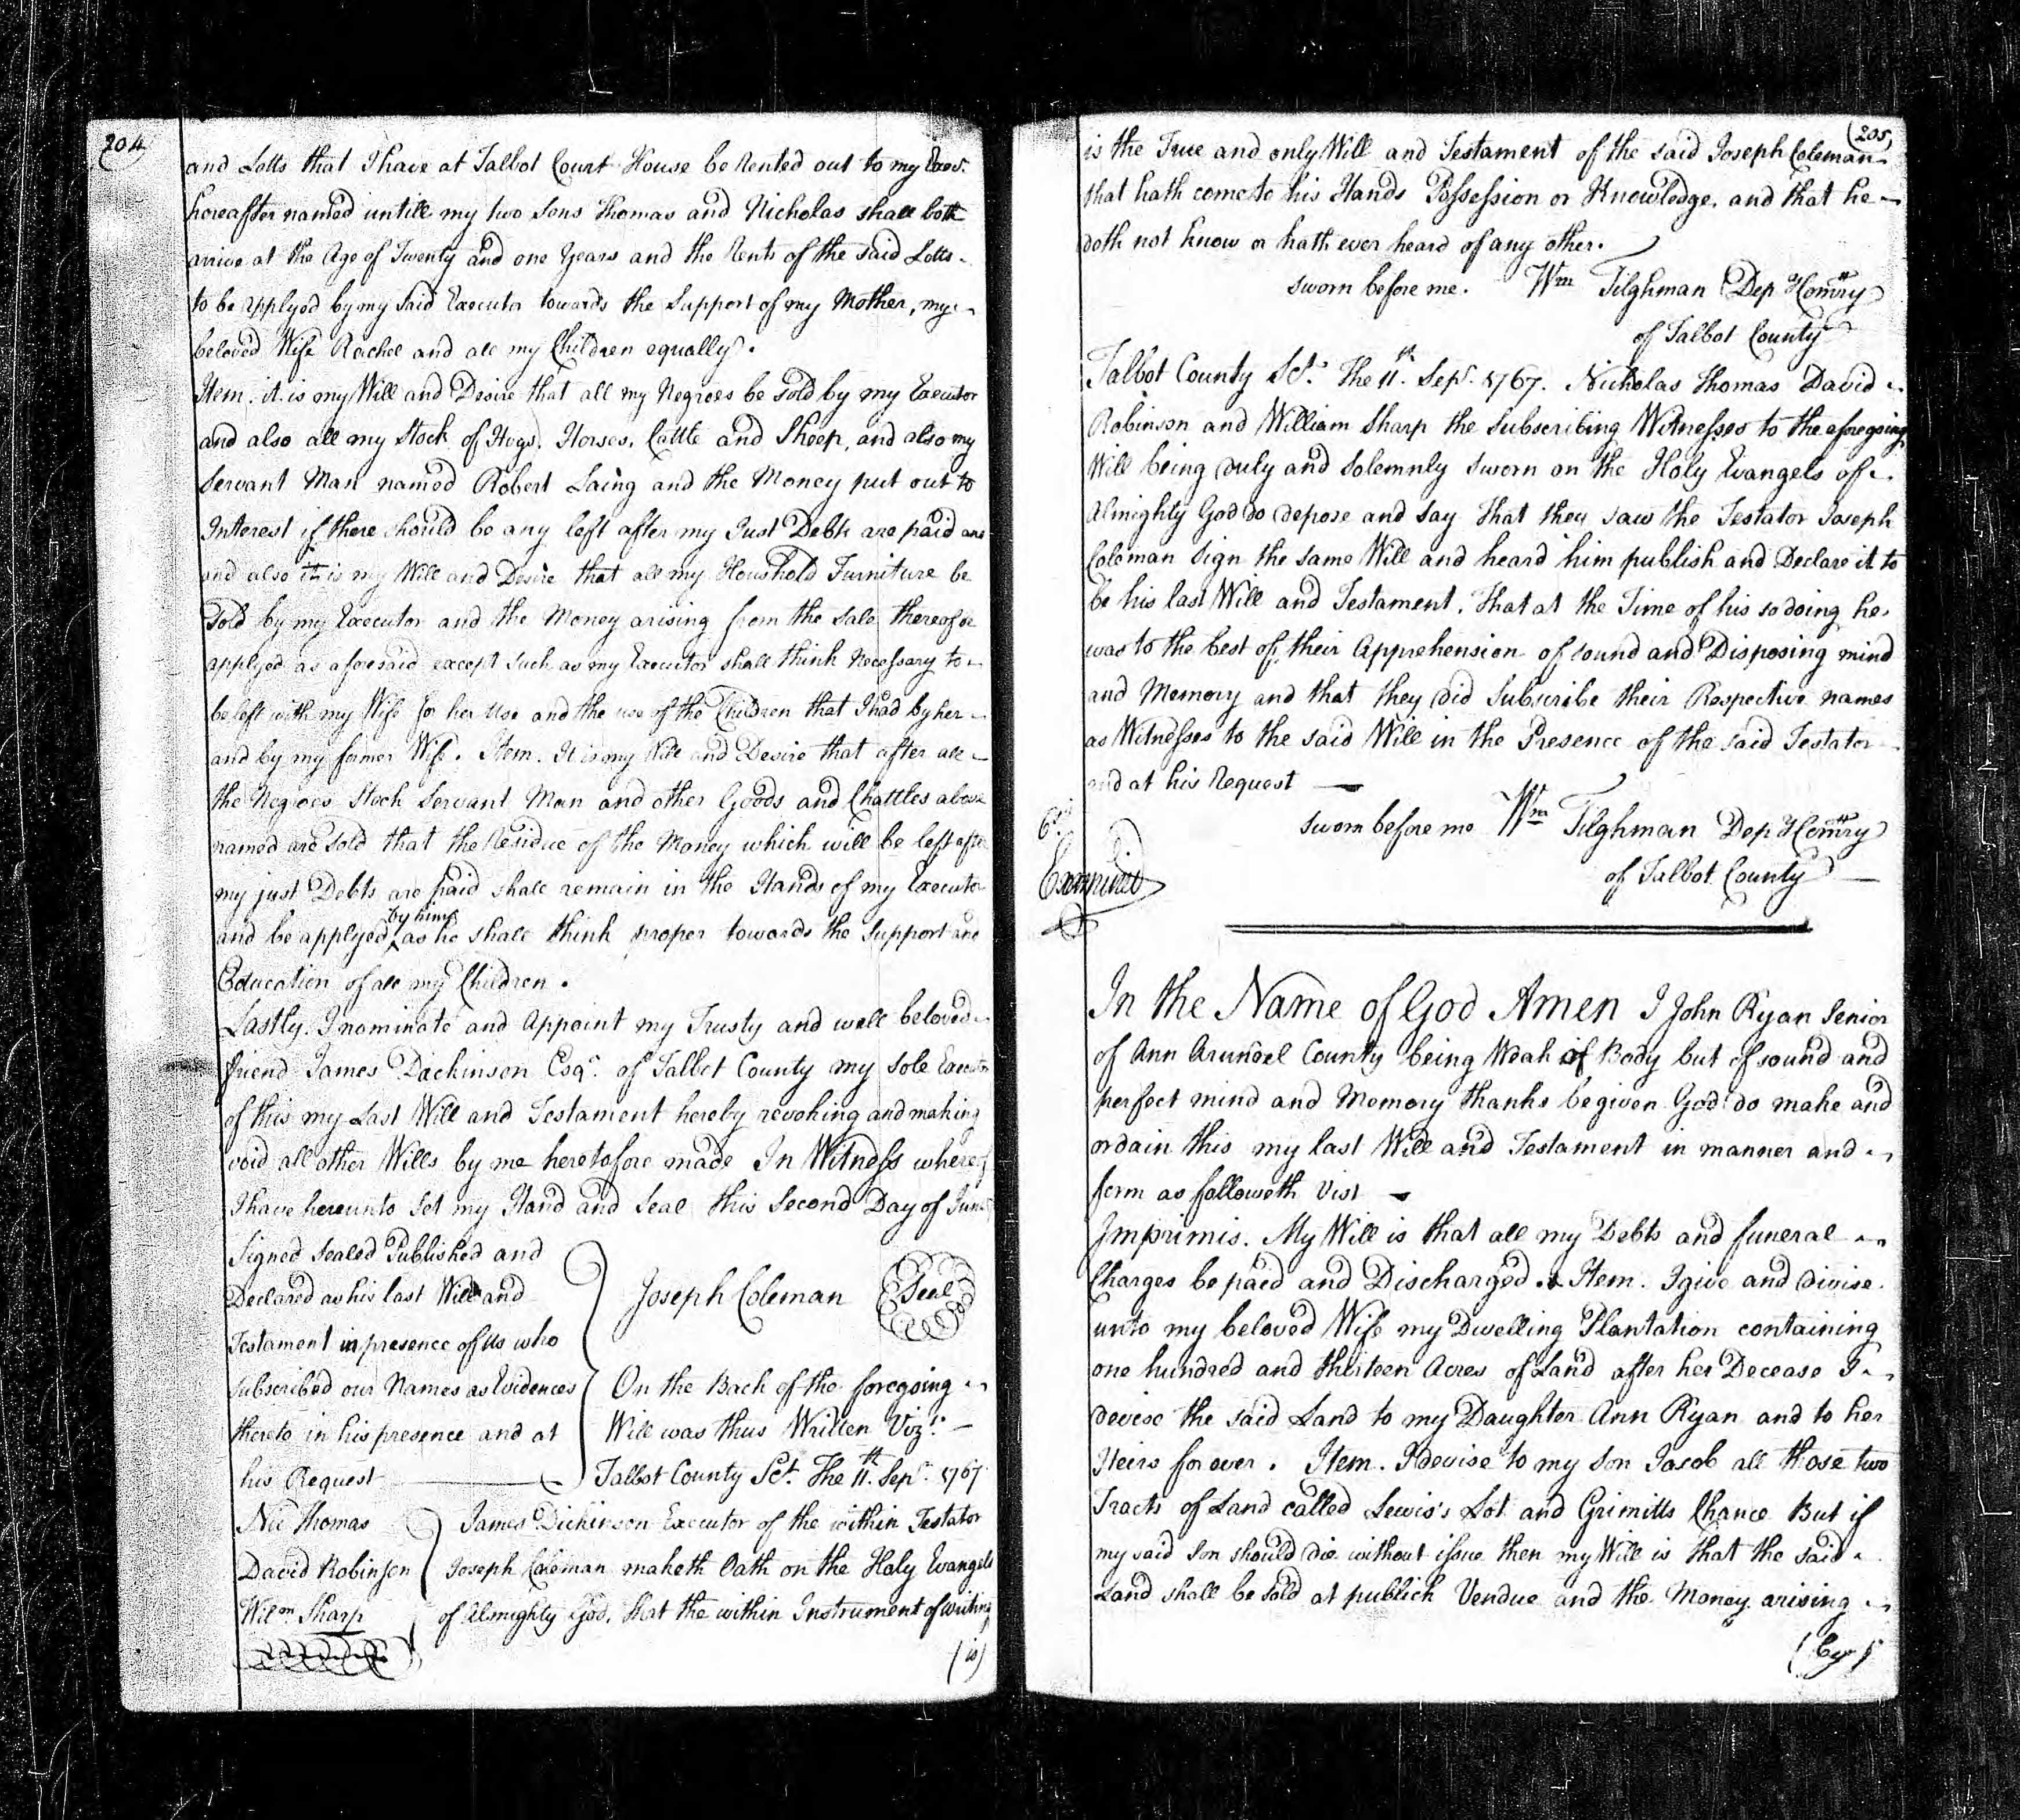 204
and Lotts that I have at Talbot Court House be Rented out to my Exec.r
hereafter named untill my two sons Thomas and Nicholas shall both
arrive at the Age of Twenty and one Years and the Rents of the said Lotts
to be applyed by my said Executor towards the Support of my Mother, my
beloved Wife Rachel and all my Children equally.
Item. it is my Will and Desire that all my Negroes be sold by my Executor
and also all my Stock of Hogs, Horses, Cattle and Sheep, and also my
Servant Man named Robert Laing and the Money put out to
Interest if there should be any left after my Just Debts are paid and
and also it is my Will and Desire that all my Houshold Furniture be
Sold by my Executor and the Money arising from the sale thereof be
applyed as aforesaid except such as my Executor shall think Necessary to
be left with my Wife for her Use and the use of the Children that I had by her
and by my former Wife. Item. It is my Will and Desire that after all
the Negroes Stock Servant Man and other Goods and Chattles above
named are sold that the Residue of the Money which will be left after
my just Debts are paid shall remain in the Hands of my Executor
and be applyed by him as he shall think proper towards the Support and
Education of all my Children.
Lastly. I nominate and Appoint my Trusty and well beloved
friend James Dickinson Esq.r of Talbot County my sole Executor
of this my Last Will and Testament hereby revoking and making
void all other Wills by me heretofore made In Witness whereof
I have hereunto Set my Hand and Seal this Second Day of June
Signed Sealed Published and
Declared as his last Will and
Testament in presence of us who
subscribed our Names as Evidences
thereto in his presence and at
his Request
Joseph Coleman Seal
On the Back of the foregoing
Will was thus Written Viz.t
Talbot County Sc.t The 11.th Sep.r 1767
Nic Thomas
David Robinson
Will.m Sharp
James Dickinson Executor of the within Testator
Joseph Coleman maketh Oath on the Holy Evangels
of Almighty God, that the within Instrument of writing
(is)
205
is the True and only Will and Testament of the said Joseph Coleman
that hath come to his Hands Possession or Knowledge, and that he
doth not know or hath ever heard of any other.
Sworn before me. Wm Tilghman Dep Comry
of Talbot County
Talbot County Sc.t The 11.th Sep.r 1767. Nicholas Thomas David
Robinson and William Sharp the Subscribing Witnesses to the aforegoing
Will being duly and Solemnly Sworn on the Holy Evangels of
Almighty God do depose and Say That they saw the Testator Joseph
Coleman sign the same Will and heard him publish and Declare it to
be his last Will and Testament. That at the Time of his so doing he
was to the best of their Apprehension of sound and Disposing mind
and Memory and that they did Subscribe their Respective names
as Witnesses to the said Will in the Presence of the said Testator
and at his Request
Sworn before me Wm Tilghman Dep Comry
of Talbot County
Examined
In the Name of God Amen I John Ryan Senior
of Ann Arundel County being Weak of Body but of sound and
perfect mind and Memory thanks be given God do make and
ordain this my last Will and Testament in manner and
form as followeth Vizt
Imprimis. My Will is that all my Debts and funeral
Charges be paid and Discharged. Item. I give and divise
unto my beloved Wife my Dwelling Plantation containing
one hundred and thirteen Acres of Land after her Decease I
devise the said Land to my Daughter Ann Ryan and to her
Heirs for ever. Item. I devise to my son Jacob all those two
Tracts of Land called Lewis's Lot and Grimitts Chance But if
my said Son should die without issue then my Will is that the said
Land shall be sold at publick Vendue and the Money arising